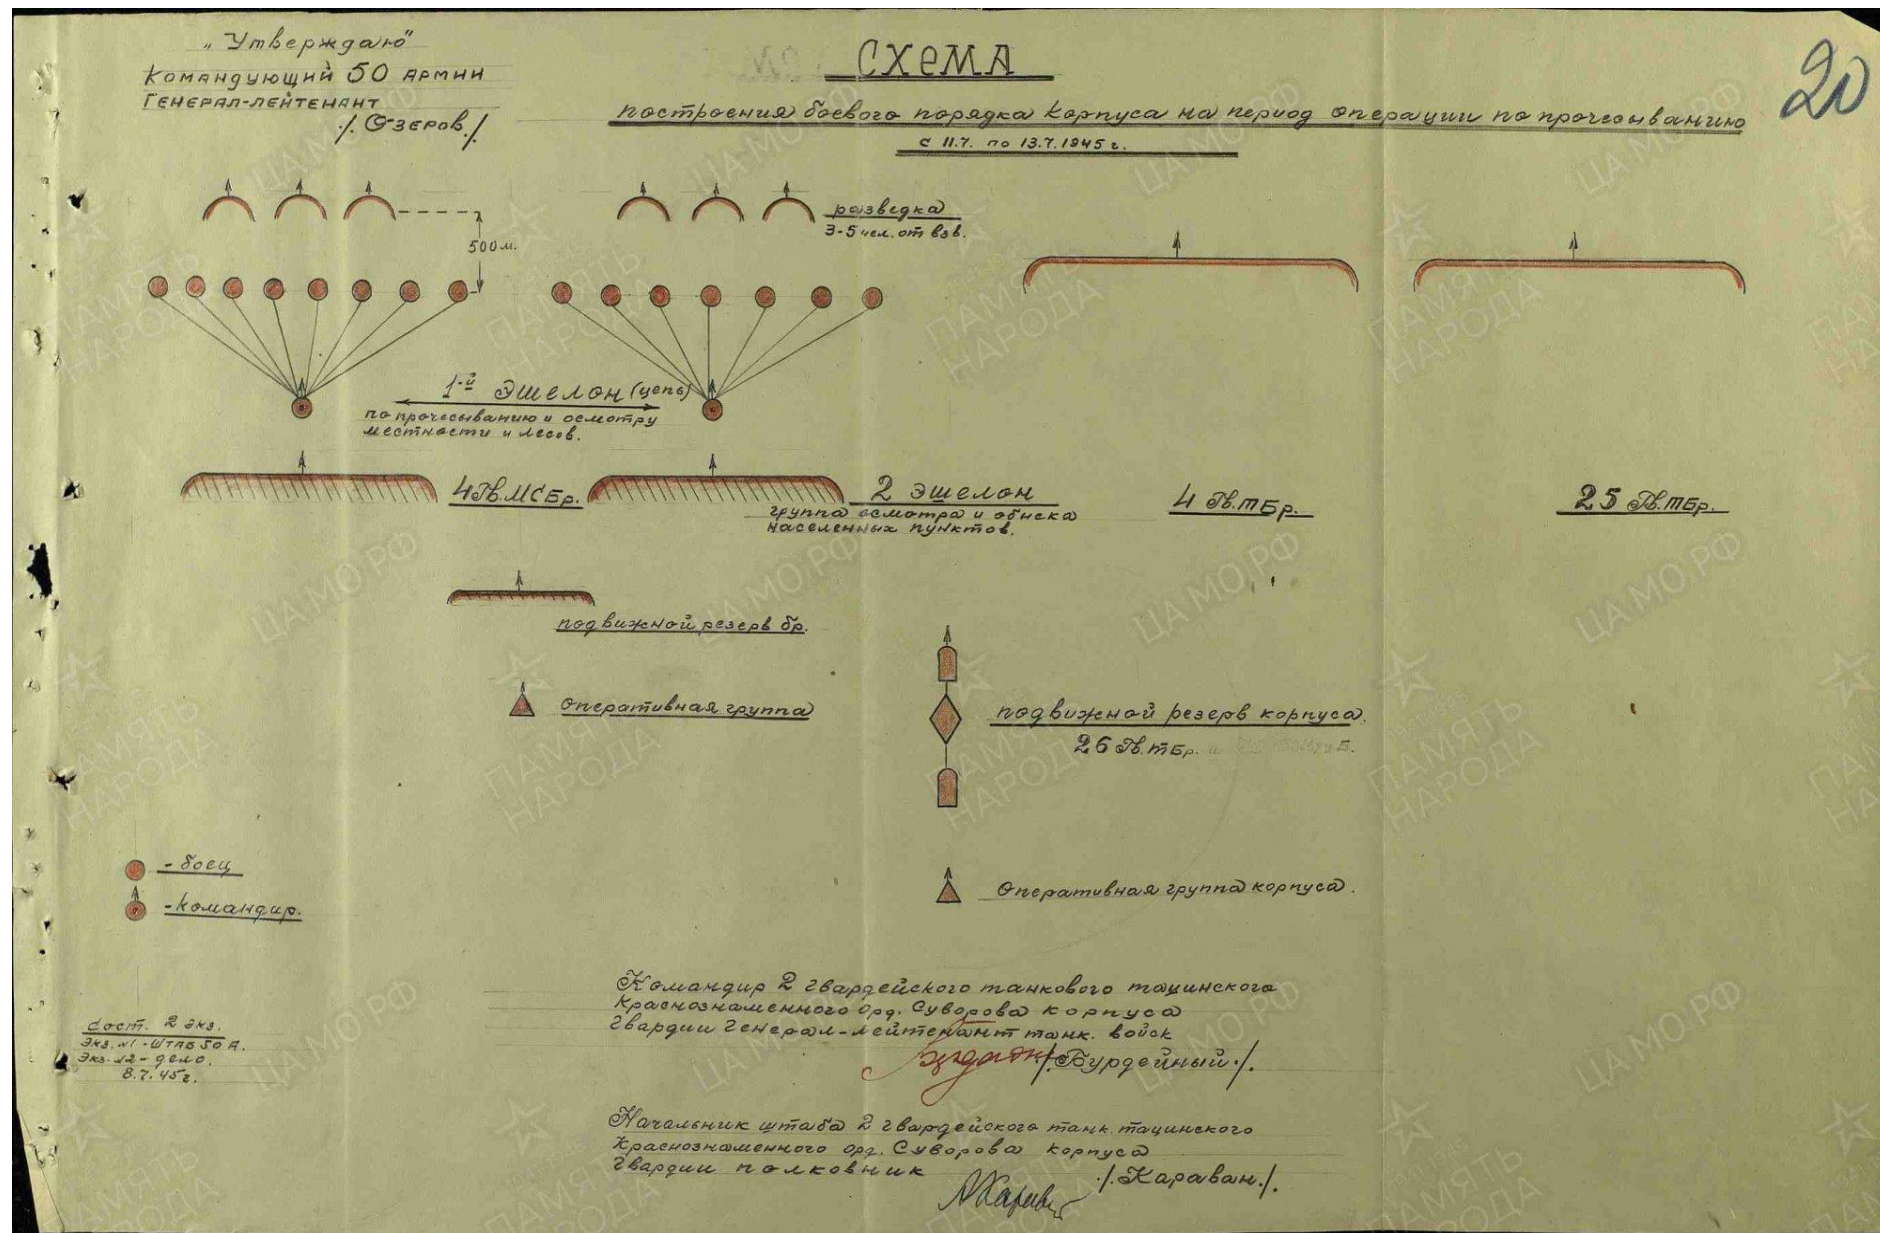 „Утверждаю"
Командующий 50 армии
Генерал-лейтенант
./. Озеров./.
20
СХЕМА
построения боевого порядка корпуса на период операции по прочесыванию
с 11.7. по 13.7.1945 г.
разведка
3-5 чел. от взв.
500 м.
1-й эшелон (цепь)
по прочесыванию и осмотру
местности и лесов.
4 Гв. МСБр.
2 эшелон
группа осмотра и обыска
населенных пунктов.
4 Гв. тБр.
25 Гв. тБр.
подвижной резерв бр.
Оперативная группа
подвижной резерв корпуса.
26 Гв. тБр.
- боец
- командир.
Оперативная группа корпуса.
Командир 2 гвардейского танкового тацинского
Краснознаменного орд. Суворова корпуса
Гвардии генерал-лейтенант танк. войск
./. Бурдейный./.
Сост. 2 экз.
Экз. №1 - штаб 50 А.
Экз. №2 - дело.
8.7.45 г.
Начальник штаба 2 гвардейского танк. тацинского
Краснознаменного орд. Суворова корпуса
Гвардии полковник
./. Караван./.
ПАМЯТЬ
НАРОДА
ЦАМО.РФ